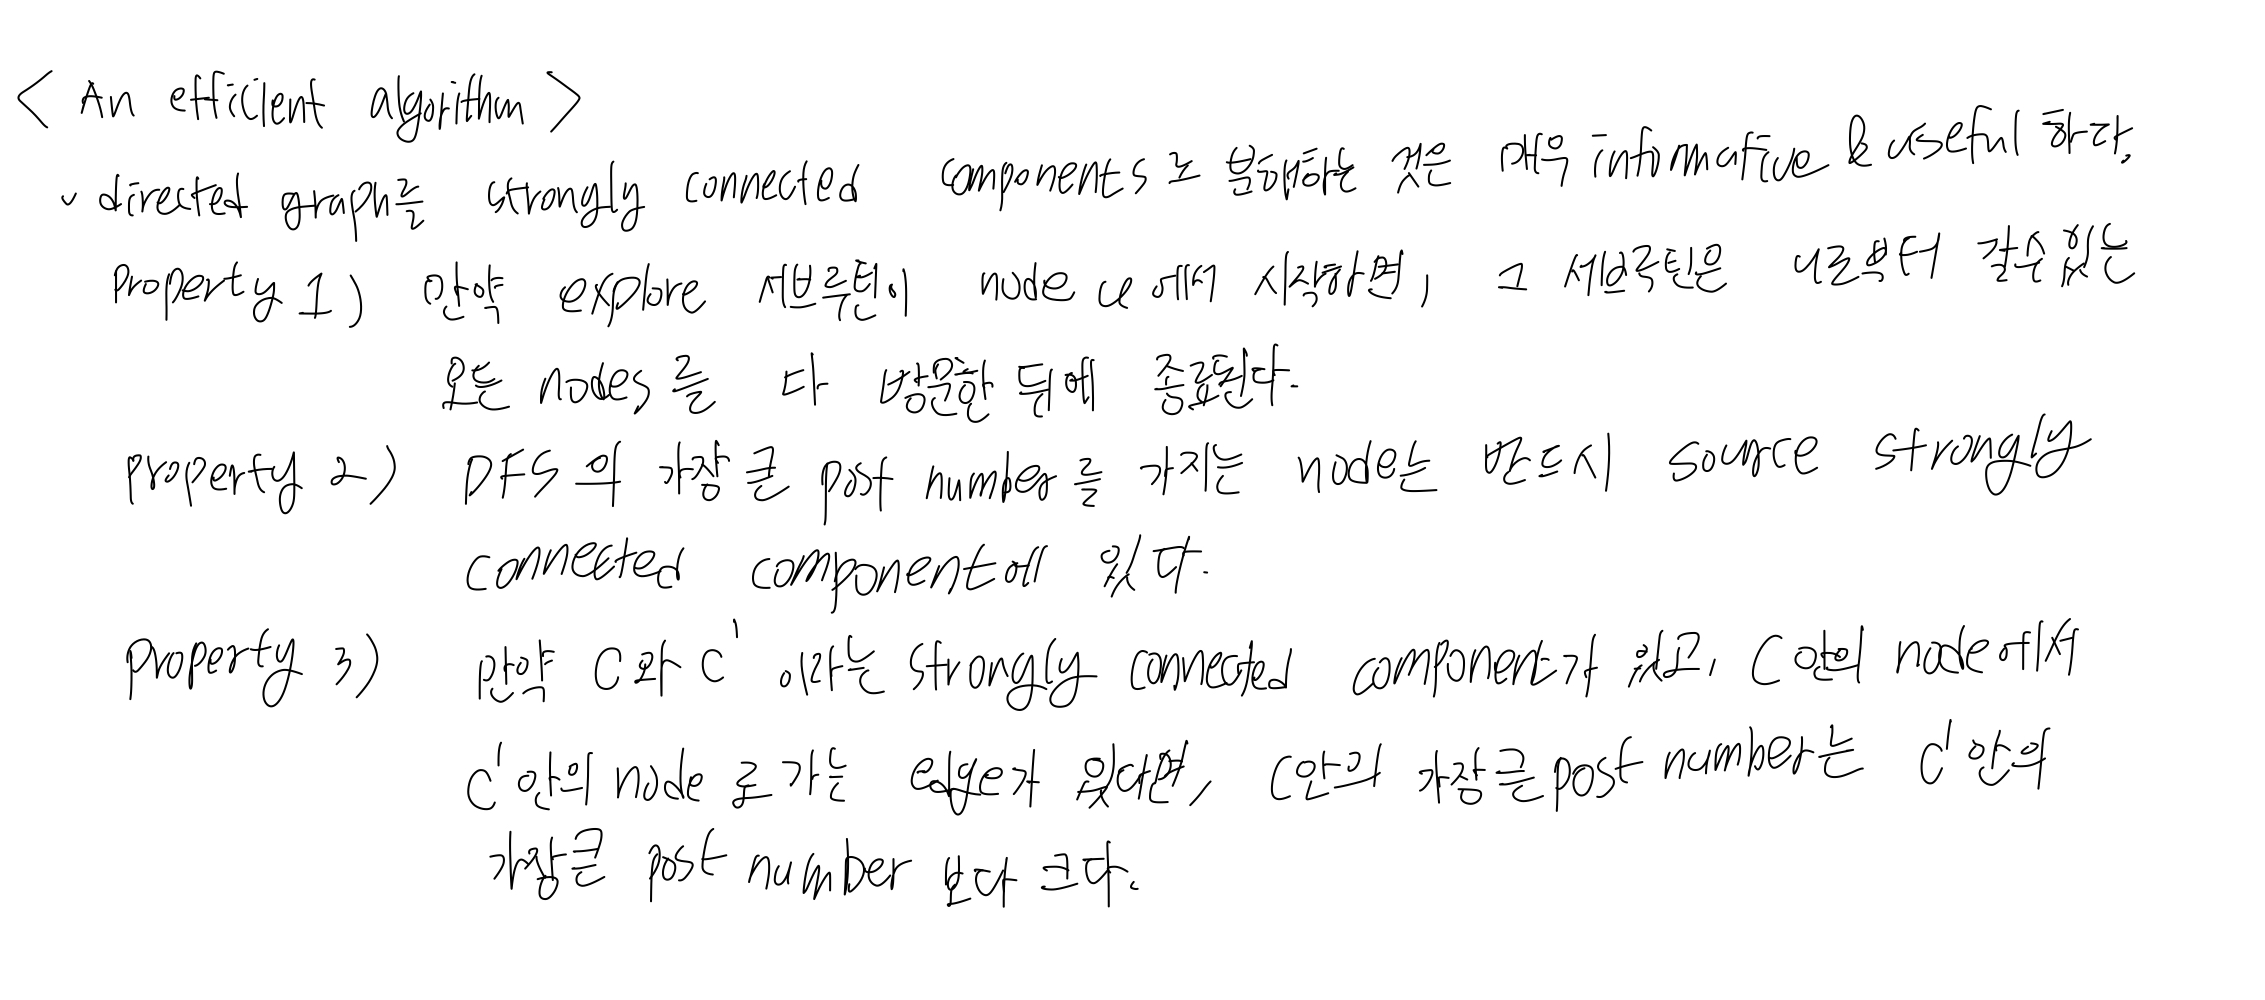 < An efficient algorithm >
✓ directed graph를 strongly connected components로 분해하는 것은 매우 informative & useful 하다.
Property 1) 만약 explore 서브루틴이 node u에서 시작하면, 그 서브루틴은 u로부터 갈수있는
모든 nodes를 다 방문한 뒤에 종료된다.
property 2) DFS의 가장 큰 post number를 가지는 node는 반드시 source strongly
connected component에 있다.
property 3) 만약 C와 C' 이라는 strongly connected component가 있고, C안의 node에서
C'안의 node로 가는 edge가 있다면, C안의 가장 큰 post number는 C'안의
가장 큰 post number 보다 크다.